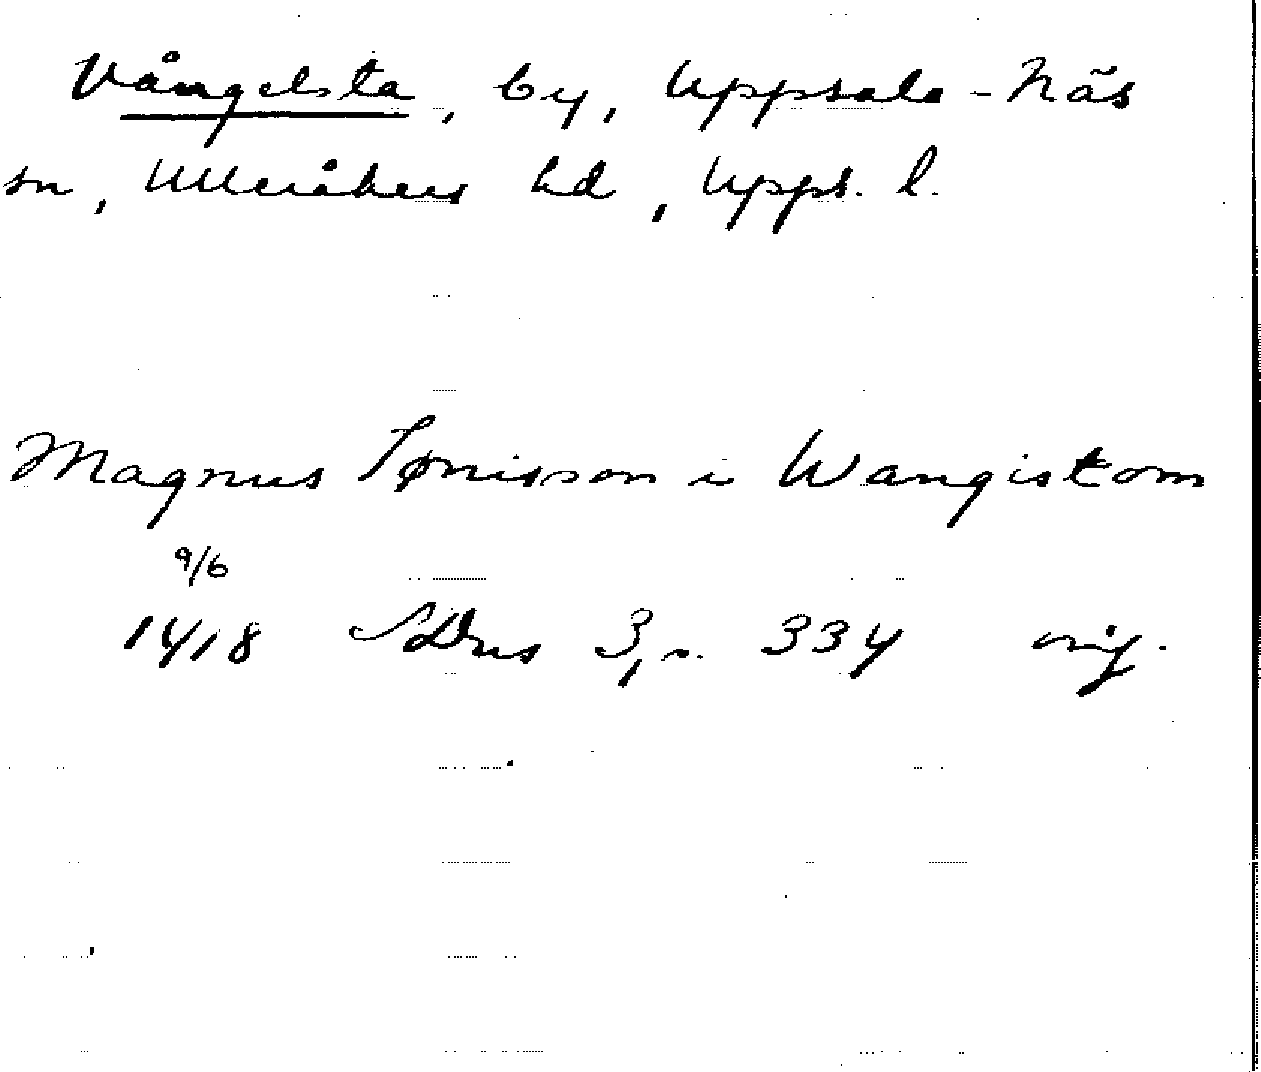 Vångelsta, by, Uppsala-Näs
sn, Ulleråkers hd, Upps. l.
Magnus Tønisson i Wangistom
9/6
1418 SDns 3, s. 334 orig.